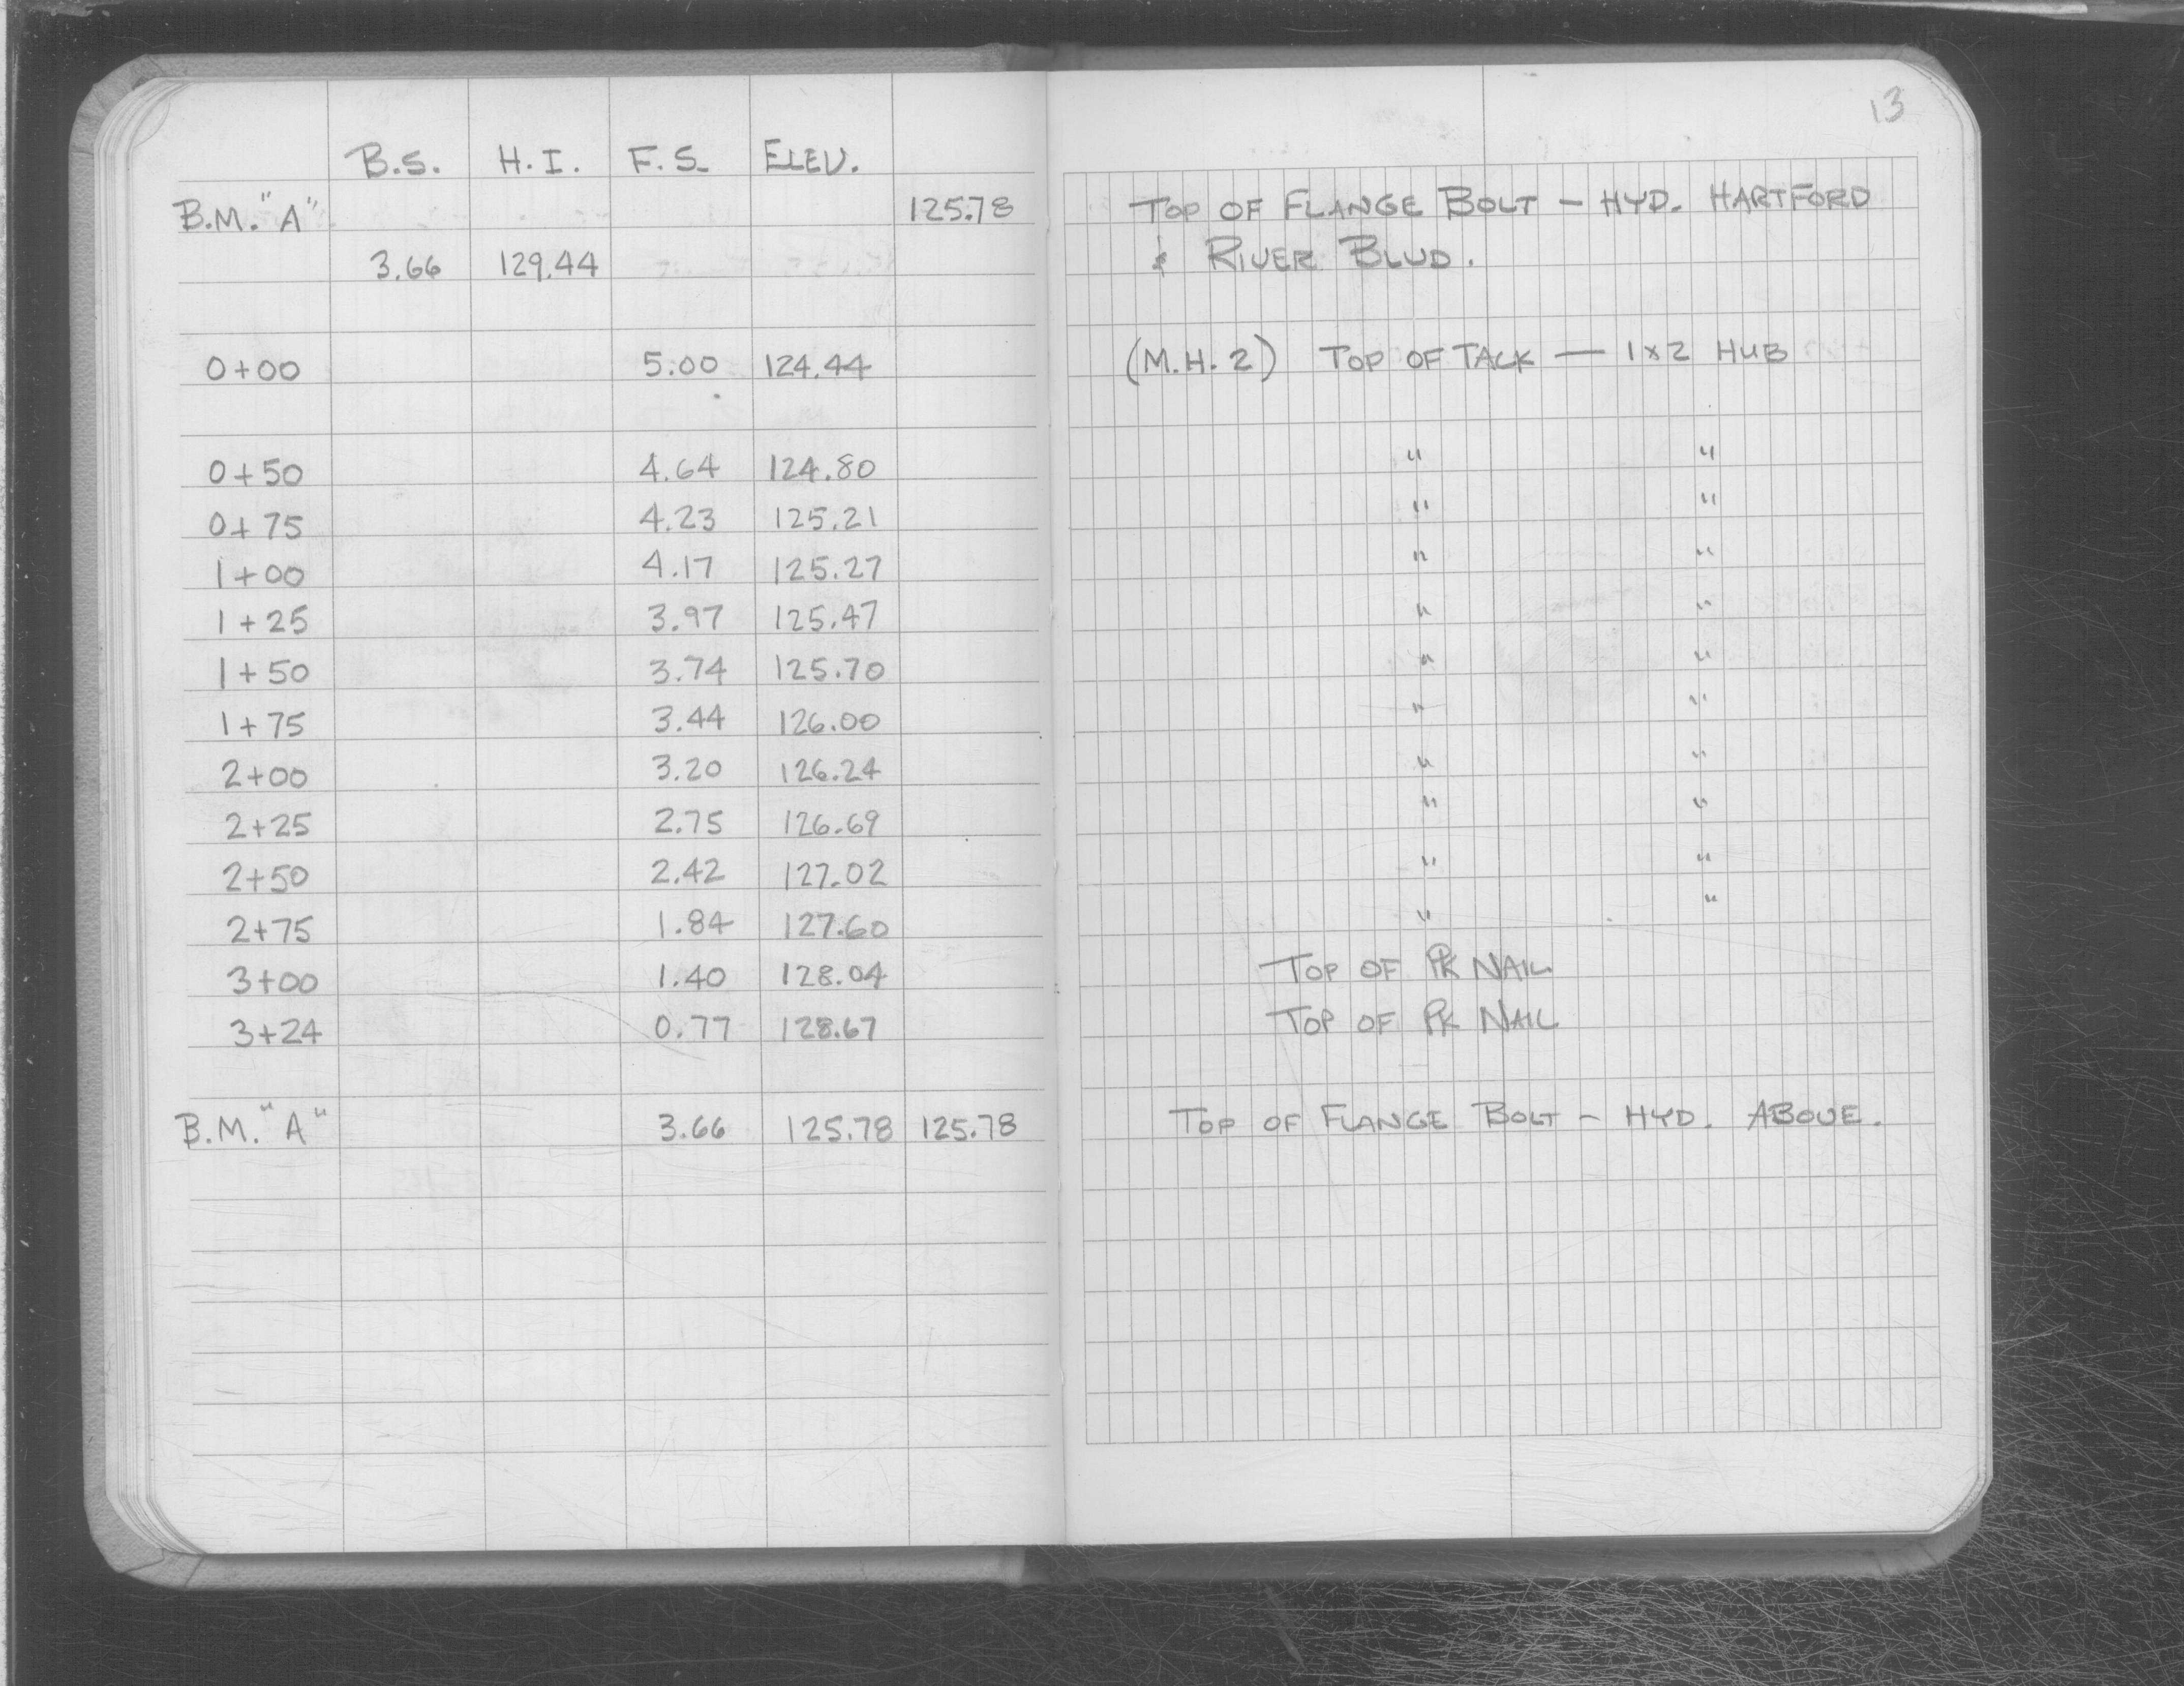 13
B.S. H.I. F.S. ELEV.
B.M. "A" 125.78 TOP OF FLANGE BOLT – HYD. HARTFORD
3.66 129.44 & RIVER BLVD.
0+00 5.00 124.44 (M.H. 2) TOP OF TACK — 1x2 HUB
0+50 4.64 124.80 " "
0+75 4.23 125.21 " "
1+00 4.17 125.27 " "
1+25 3.97 125.47 " "
1+50 3.74 125.70 " "
1+75 3.44 126.00 " "
2+00 3.20 126.24 " "
2+25 2.75 126.69 " "
2+50 2.42 127.02 " "
2+75 1.84 127.60 " "
3+00 1.40 128.04 TOP OF PK NAIL
3+24 0.77 128.67 TOP OF PK NAIL
B.M. "A" 3.66 125.78 125.78 TOP OF FLANGE BOLT – HYD. ABOVE.